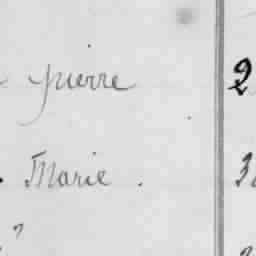 pierre 2
Marie . 3